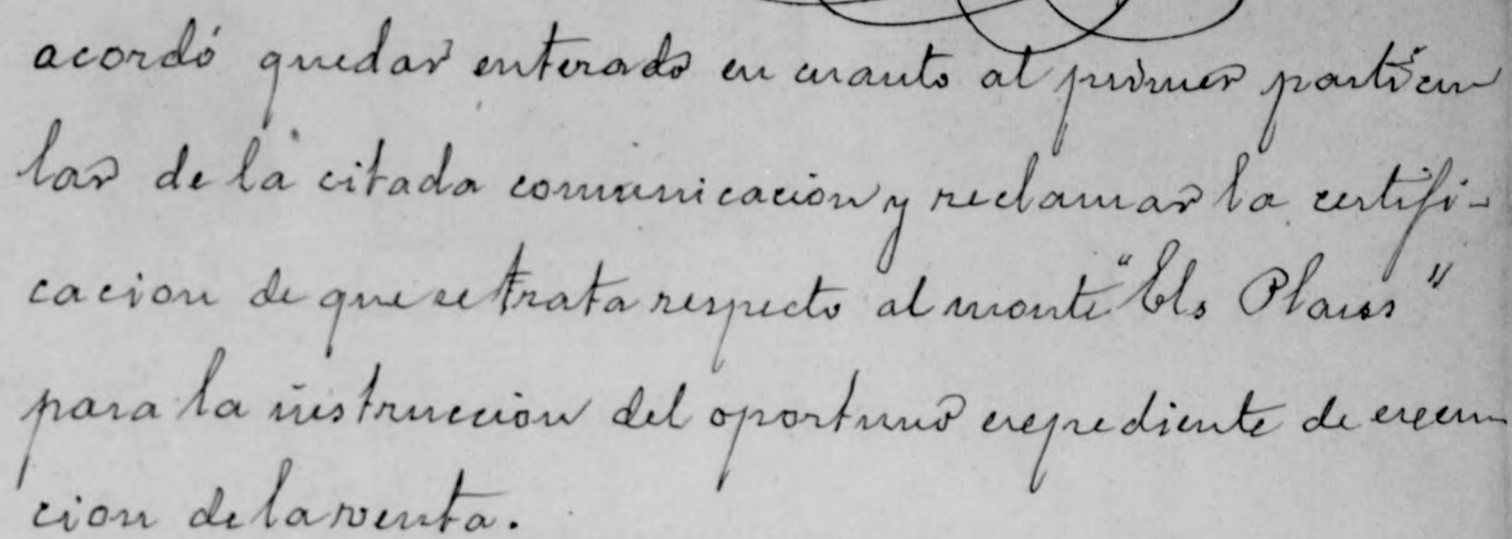 acordó quedar enterado en cuanto al primer particu
lar de la citada comunicacion y reclamar la certifi-
cacion de que se trata respecto al monte "Els Plans"
para la instruccion del oportuno expediente de excen
cion de la venta.